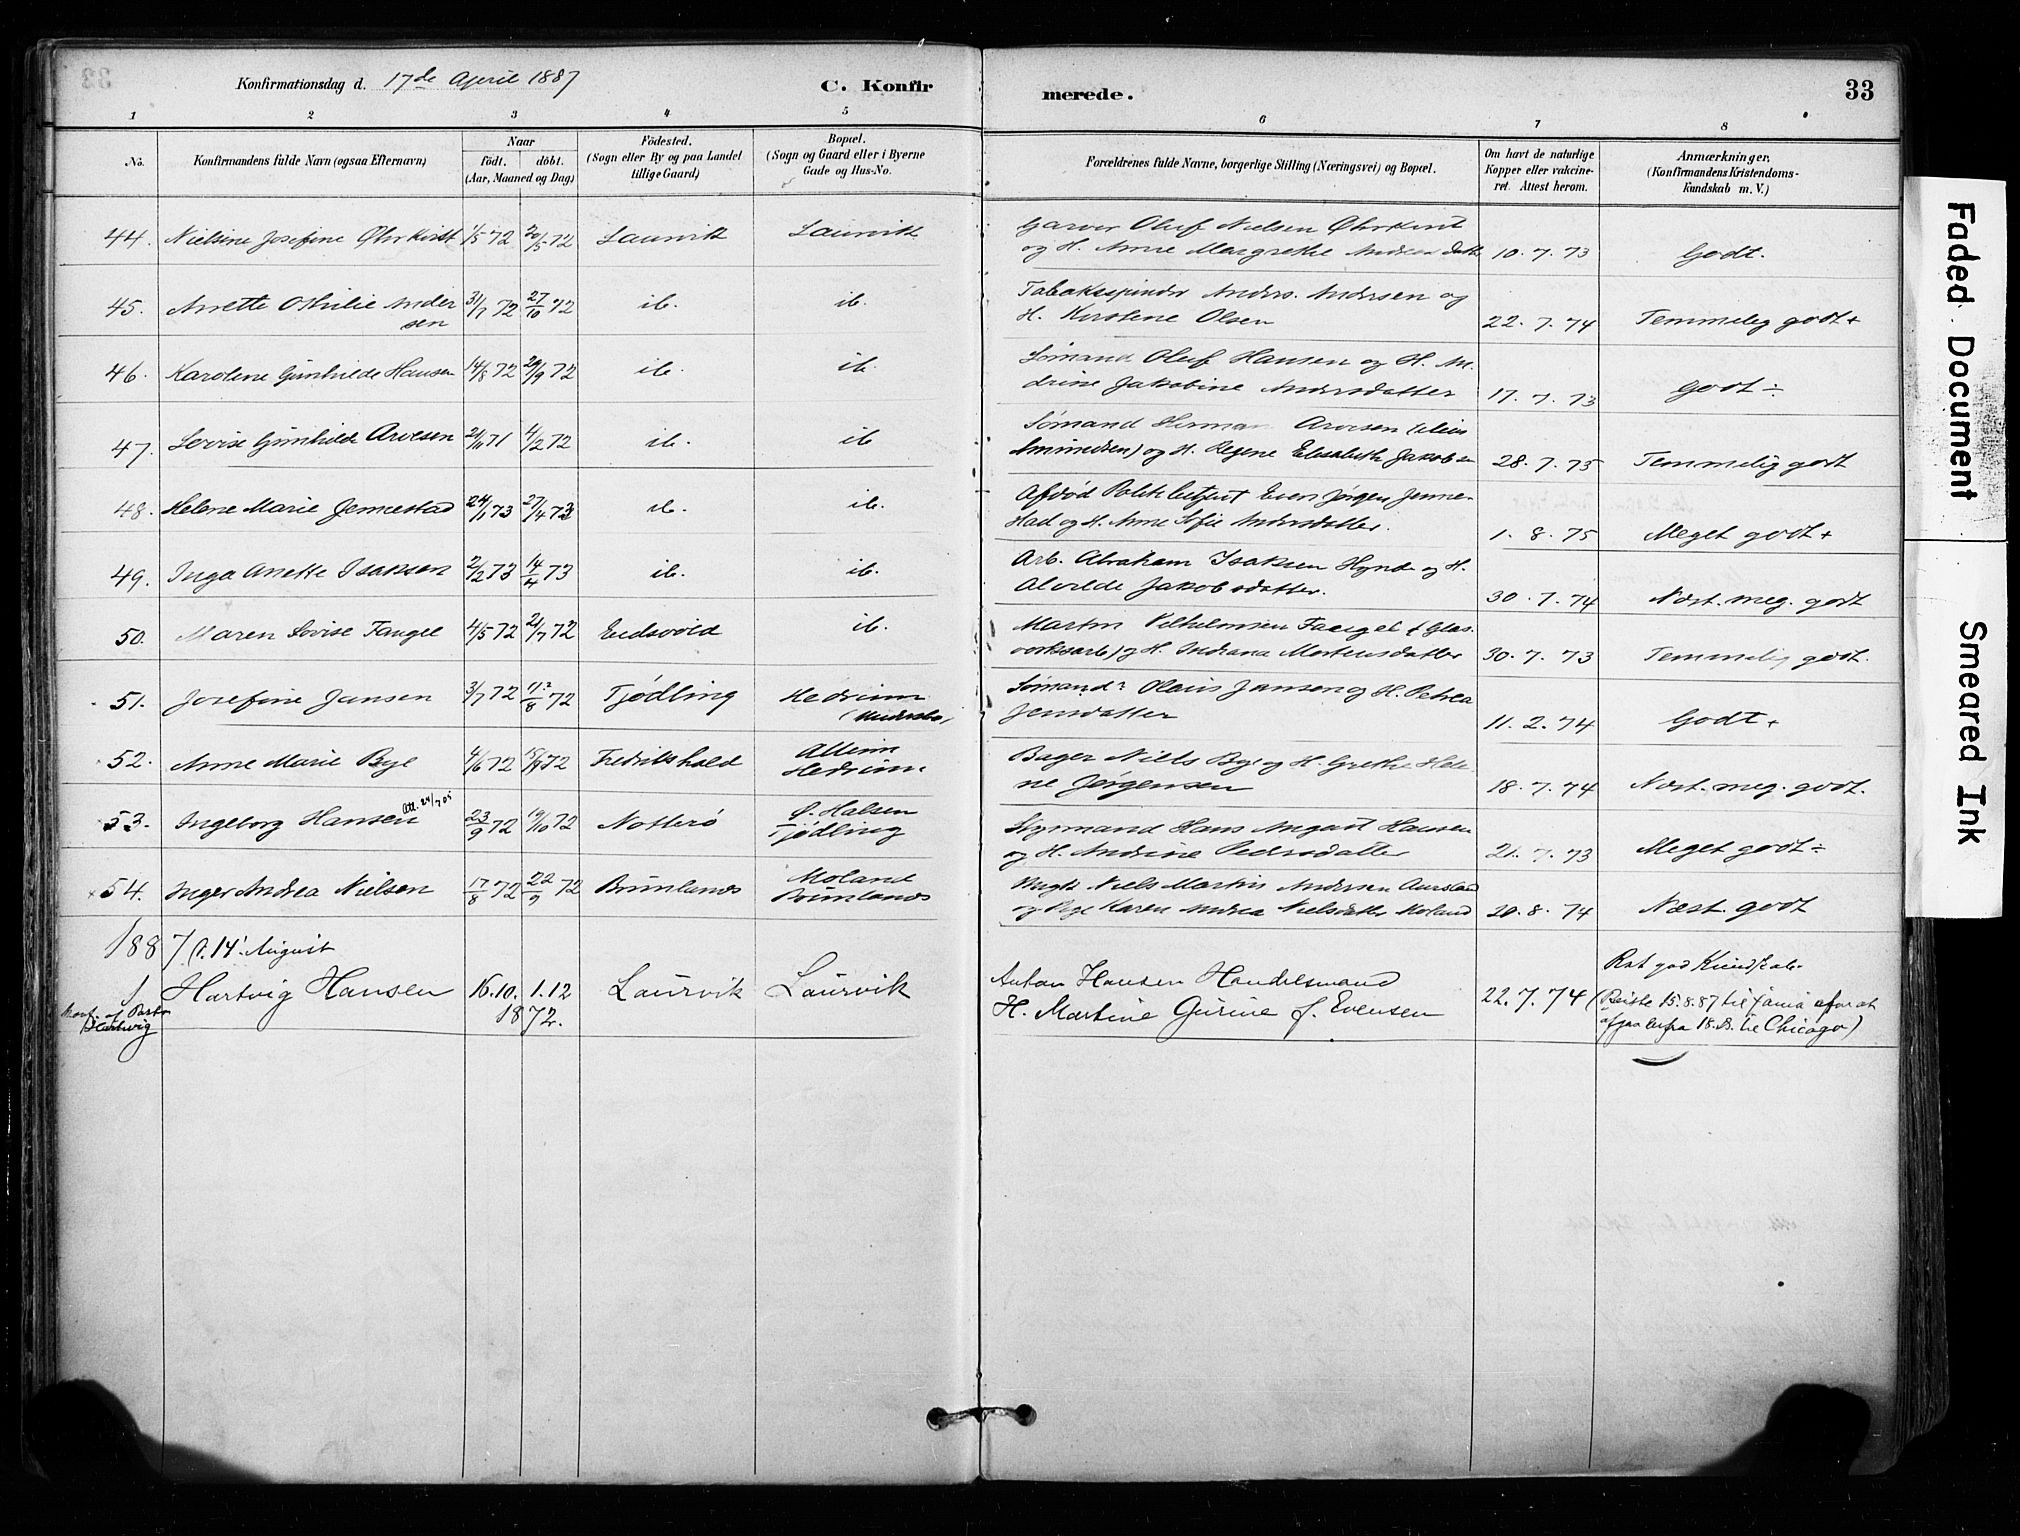 Konfirmationsdag d. 17de April 1887
C. Konfirmerede.
33
1 2 3 4 5 6 7 8
No.
Konfirmandens fulde Navn (ogsaa Efternavn)
Naar
födt. döbt.
(Aar, Maaned og Dag)
Födested.
(Sogn eller By og paa Landet
tillige Gaard)
Bopæl.
(Sogn og Gaard eller i Byerne
Gade og Hus-No.
Forældrenes fulde Navne, borgerlige Stilling (Næringsvei) og Bopæl.
Om havt de naturlige
Kopper eller vakcine-
ret. Attest herom.
Anmærkninger,
(Konfirmandens Kristendoms-
kundskab m. V.)
44. Nielsine Josefine Øhrkvist 1/5 72 20/5 72 Laurvik Laurvik
Garver Oluf Nielsen Øhrkvist
og H. Anne Margrethe 10. 7. 73 Godt.
45. Anette Othilie Ander
sen 31/7 72 27/10 72 ib. ib.
Tobaksspinder Anders Andersen og
H. Kirstene Olsen 22. 7. 74 Temmelig godt +
46. Karoline Gunhilde Hansen 14/8 72 29/9 72 ib. ib.
Sømand Oluf Hansen og H.
drine Jakobine Andersdatter 17. 7. 73 Godt ÷
47. Lovise Gunhilde Arvesen 71 4/2 72 ib. ib
Sømand Herman Arvesen
Amundsen) og H. Regine Elisabeth Jakobsen 28. 7. 75 Temmelig godt
48. Helene Marie Jennestad 24/1 73 27/4 73 ib. ib.
Afdød Politibetjent Even Jørgen Jenne-
stad og H. Anne Sofie Andersdatter. 1. 8. 75 Meget godt +
49. Inga Anette Isaksen 2/2 73 14/4 73 ib. ib.
Arb. Abraham Isaksen og H.
Alvilde Jakobsdatter. 30. 7. 74 Næst. meg. godt
50. Maren Lovise Faugel 4/5 72 21/7 72 Eidsvold ib.
Martin Vilhelmsen Faugel (Glas.
verksarb) og H. Indiana Mortensdatter 30. 7. 73 Temmelig godt.
51. Josefine Jansen 3/7 72 72 Tjødling Hedrum
Sømand Olaus Jansen og H. Petrea
Jensdatter 11. 2. 74 Godt +
52. Anne Marie Bye 4/6 72 72 Fredrikshald
Hedrum
Bager Niels Bye og H. Grethe Hele-
ne Jørgensen 18. 7. 74 Næst. meg. godt.
53. Ingeborg Hansen Att. 24/7 05 23/9 72 19/10 72 Nøtterø Ø. Halsen
Tjødling
Styrmand Hans August Hansen
og H. Andrine Pedersdatter 21. 7. 73 Meget godt ÷
× 54. Inger Andrea Nielsen 17/8 72 22/9 72 Brunlanes Moland
Brunlanes
Ungk. Niels Martin Andersen
og Pige Karen Andrea Nielsdatter Moland 20. 8. 74 Næst. godt
1887 d. 14. August
1 Hartvig Hansen 16.10. 1.12
1872. Laurvik Laurvik
Konf. af Pastor
Hartvig
Anton Hansen Handelsmand
H. Martine Gurine f. Evensen 22. 7. 74
Ret god Kundskab.
(Reiste 15.8.87 til for at
18.8. til Chicago)
Faded Document
Smeared Ink